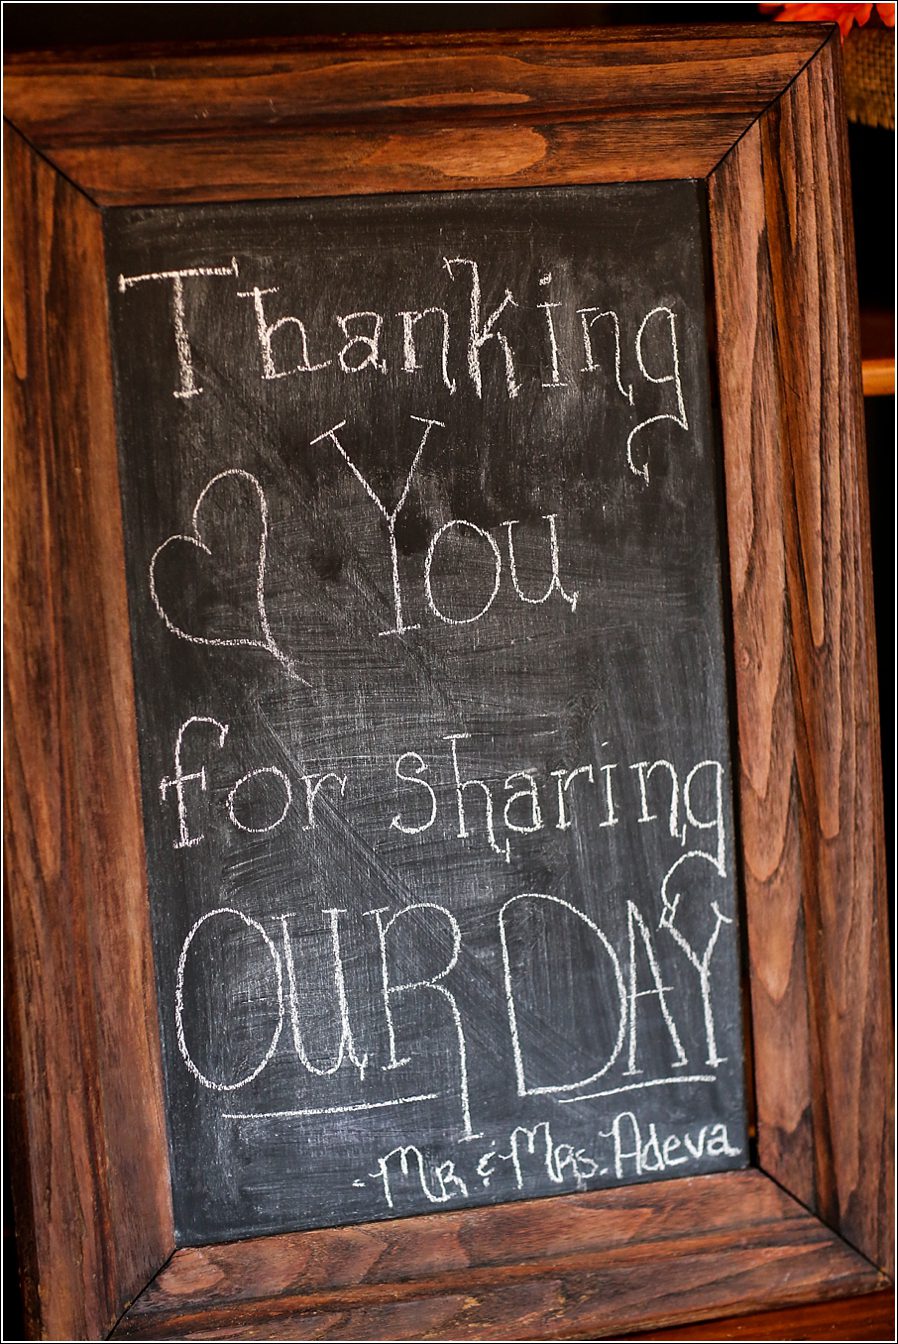 Thanking
You
for sharing
OUR DAY
- Mr & Mrs. Adeva